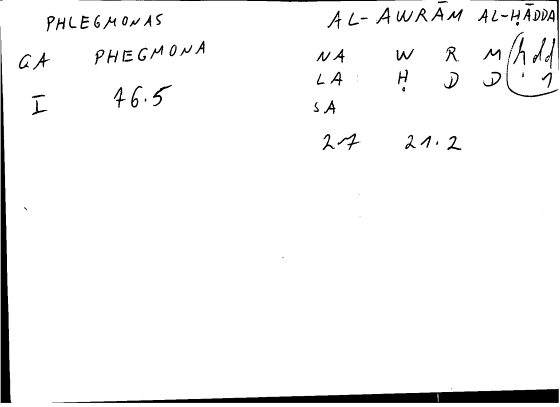 PHLEGMONAS AL-AWRĀM AL-ḤĀDDA
GA PHEGMONA NA W R M ḥdd
LA Ḥ D D 1
I 46.5 SA
2.7 21.2